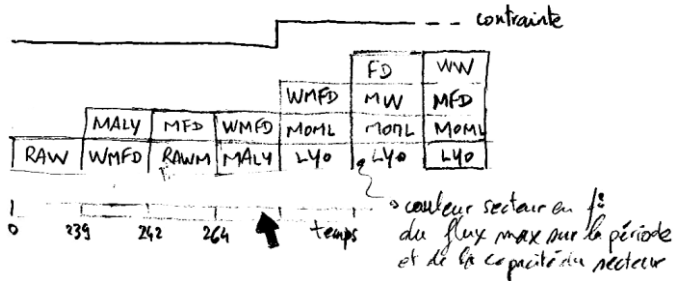 contrainte
FD WW
WMFD MW MFD
MALY MFD WMFD MOML MOML MOML
RAW WMFD RAWM MALY LYO LYO LYO
0 239 242 264 temps
couleur secteur en f°
du flux max sur la période
et de la capacité du secteur